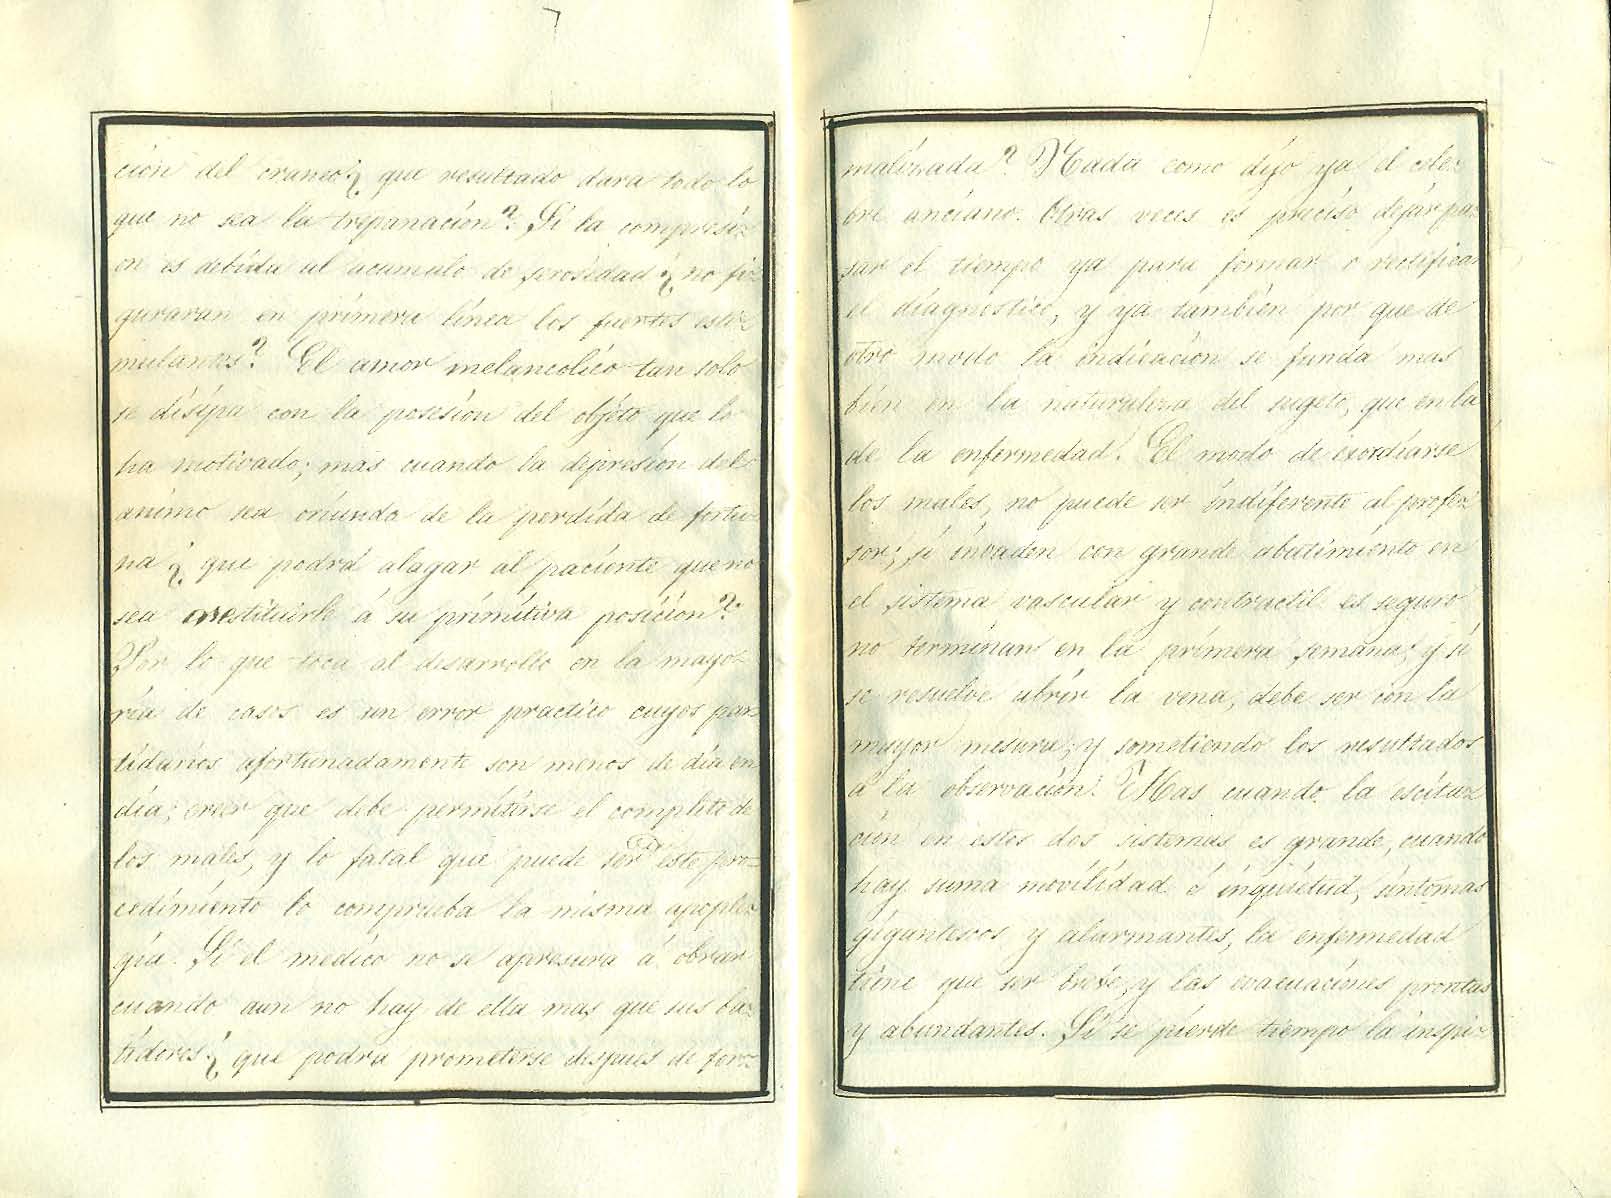 cion del craneo ¿ que resultado dara todo lo
que no sea la trepanacion? Si la compresi=
on es debida al acumulo de serosidad ¿ no fi=
guraran en primera linea los fuertes esti=
mulantes? El amor melancolico tan solo
se disipa con la posesion del objeto que lo
ha motivado; mas cuando la depresion del
animo sea oriunda de la perdida de fortu=
na ¿ que podrá alagar al paciente que no
sea restituirle á su primitiva posicion?
Por lo que toca al desarrollo en la mayo=
ria de casos es un error practico cuyos par=
tidarios afortunadamente son menos de dia en
dia; creer que debe permitirse el completo de
los males, y lo fatal que puede ser este pro=
cedimiento lo comprueba la misma apople=
gia. Si el medico no se apresura á obrar
cuando aun no hay de ella mas que sus ba=
tidores ¿ que podra prometerse despues de for=
malizada? Nada como dijo ya el cele=
bre anciano. Otras veces es preciso dejar pa=
sar el tiempo ya para formar o rectificar
el diagnostico, y ya tambien por que de
otro modo la indicacion se funda mas
bien en la naturaleza del sugeto, que en la
de la enfermedad. El modo de exordiarse
los males, no puede ser indiferente al profe=
sor; si invaden con grande abatimiento en
el sistema vascular y contractil es seguro
no terminan en la primera semana; y si
se resuelve abrir la vena, debe ser con la
mayor mesura; y sometiendo los resultados
á la observacion. Mas cuando la escita=
cion en estos dos sistemas es grande, cuando
hay suma movilidad é inquietud, sintomas
gigantescos y alarmantes, la enfermedad
tiene que ser breve, y las evacuaciones prontas
y abundantes. Si se pierde tiempo la inspi=